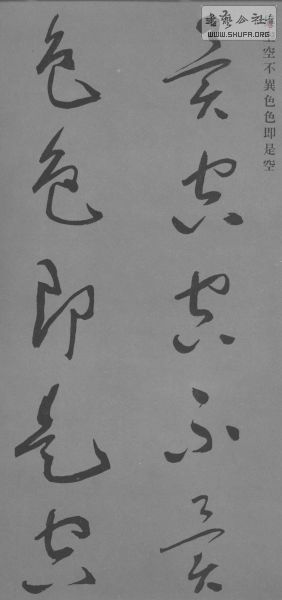 書藝公社
www.SHUFA.ORG
空不異色色即是空
異空空不異
色色即是空